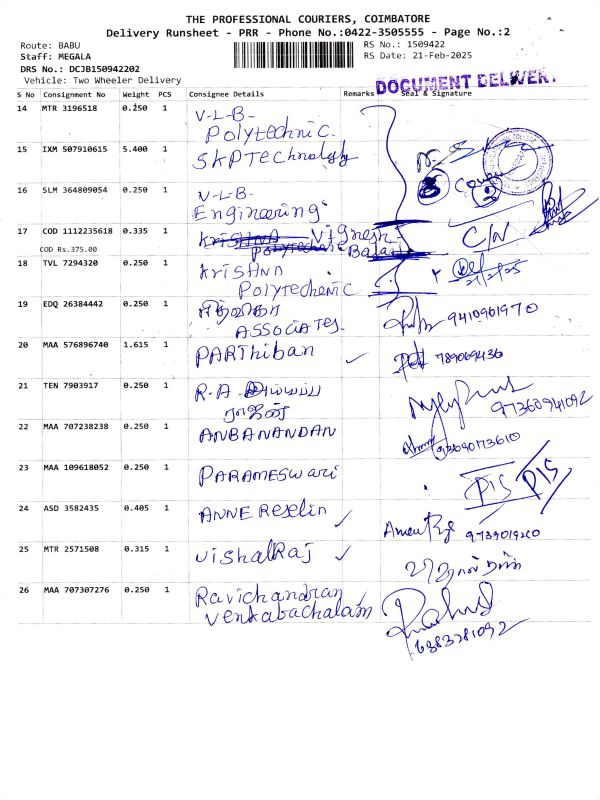 THE PROFESSIONAL COURIERS, COIMBATORE
Delivery Runsheet - PRR - Phone No.:0422-3505555 - Page No.:2
Route: BABU
RS No.: 1509422
Staff: MEGALA
RS Date: 21-Feb-2025
DRS No.: DCJB150942202
Vehicle: Two Wheeler Delivery
DOCUMENT DELIVERY
S No Consignment No Weight PCS Consignee Details Remarks Seal & Signature
14 MTR 3196518 0.250 1 V-L-B-
Polytechnic.
15 IXM 507910615 5.400 1 SKP Technology
16 SLM 364809054 0.250 1 V-L-B-
Engineering
17 COD 1112235618 0.335 1 Krishna Vignesh-
COD Rs.375.00 Polytechnic Balaji
C/N
18 TVL 7294320 0.250 1 Krishna
Polytechenic
21/2/25
19 EDQ 26384442 0.250 1
ASSOCIATES.
9410961970
20 MAA 576896740 1.615 1 PARThiban ✓
789069436
21 TEN 7903917 0.250 1 R.A
ராஜன்
97360941092
22 MAA 707238238 0.250 1 ANBANANDAN
23 MAA 109618052 0.250 1 PARAMESWari
P15 P15
24 ASD 3582435 0.405 1 ANNE Reselin ✓
9739019260
25 MTR 2571508 0.315 1 VishalRaj ✓
26 MAA 707307276 0.250 1 Ravichandran ✓
Venkabachalam
6383281092